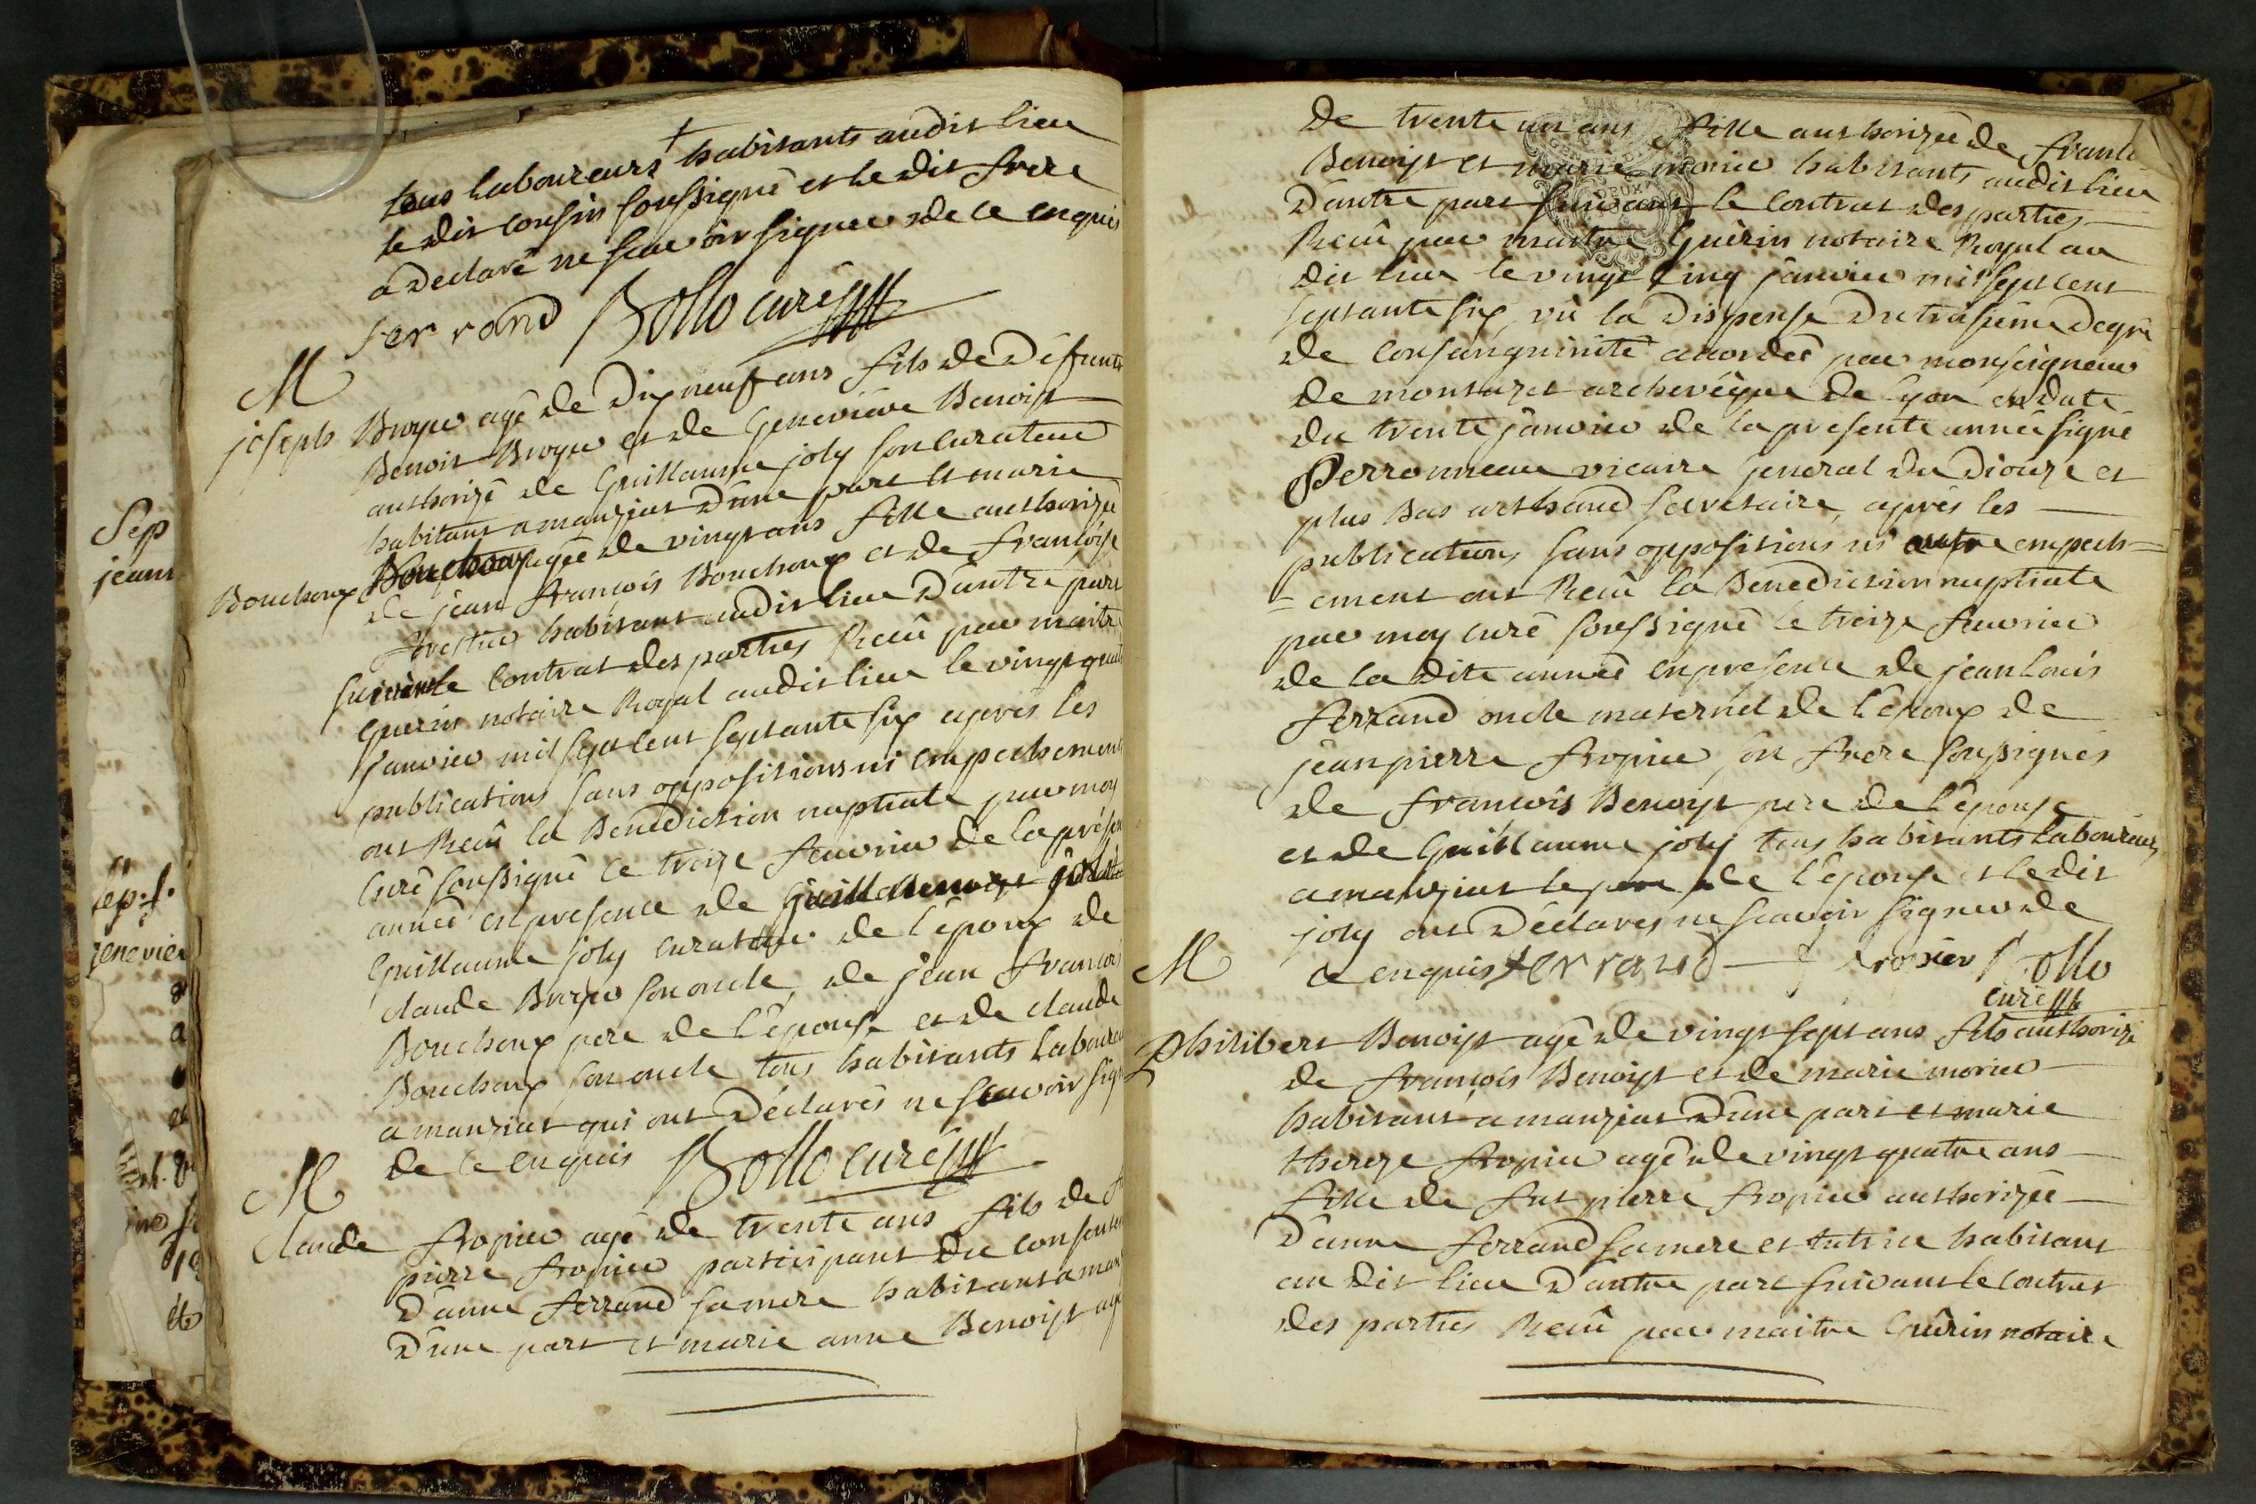 tous laboureurs + habitants audit lieu
le dit cousin soussigné et le dit frere
a declaré ne scavoir signer de ce enquis
ferrand Bollo curé
M
joseph Broyer agé de dix neuf ans fils de défunt
Benoit Broyer et de Genevieve Benoist
authorizé de Guillaume joly son curateur
habitant a manziat d'une part et marie
Bouchoux agée de vingt ans fille authorizée
de jean françois Bouchoux et de françoise
habitant audit lieu d'autre part
suivant le contrat des parties Recû par maitre
Guerin notaire Royal audit lieu le vingt quatre
janvier mil sept cent septante six après les
publications sans oppositions ni empechements
ont Recû la Benediction nuptiale par moy
Curé soussigné le treize feuvrier de la présente
année en presence de
Guillaume joly curateur de l'époux de
claude Broyer son oncle, de jean francois
Bouchoux pere de l'épouse et de claude
Bouchoux son oncle tous habitants Laboureurs
a manziat qui ont déclarés ne scavoir signer
de ce enquis Bollo curé
M
Claude fropier agé de trente ans fils de
pierre fropier participant du consentement
d'anne ferrand sa mere habitant a manziat
d'une part et marie anne Benoist agée
Sep
jeann
sep.f.
genevie
de trente un ans fille authorizée de franc
Benoist et marie morier habitants audit lieu
d'autre part suivant le contrat des parties
Recû par maitre Guérin notaire Royal au
dit lieu le vingt cinq janvier mil sept cent
septante six, vû la dispense du troisieme degré
de consanguinité acordée par monseigneur
de montazet archevêque de Lyon en date
du trente janvier de la presente année signé
Perronneau vicaire general du diocèze et
plus bas arthaud secretaire, après les
publications, sans oppositions ni autre empech=
=ement ont Recû la Benediction nuptiale
par moy curé soussigné le treize feuvrier
de la dite année en presence de jean Louis
ferrand oncle maternel de l'époux de
jean pierre fropier son frere soussignés
de francois Benoist pere de l'épouse
et de Guillaume joly tous habitants Laboureurs
a manziat le pere de l'épouse et le dit
joly ont déclarés ne scavoir signer de
ce enquis ferrand f fropier Bollo
curé
M
Philibert Benoist agé de vingt sept ans fils authorizé
de françois Benoist et de marie morier
habitant a manziat d'une part et marie
thereze fropier agée de vingt quatre ans
fille de fut pierre fropier authorizée
d'anne ferrand sa mere et tutrice habitant
au dit lieu d'autre part suivant le contrat
des parties Recû par maitre Guérin notaire